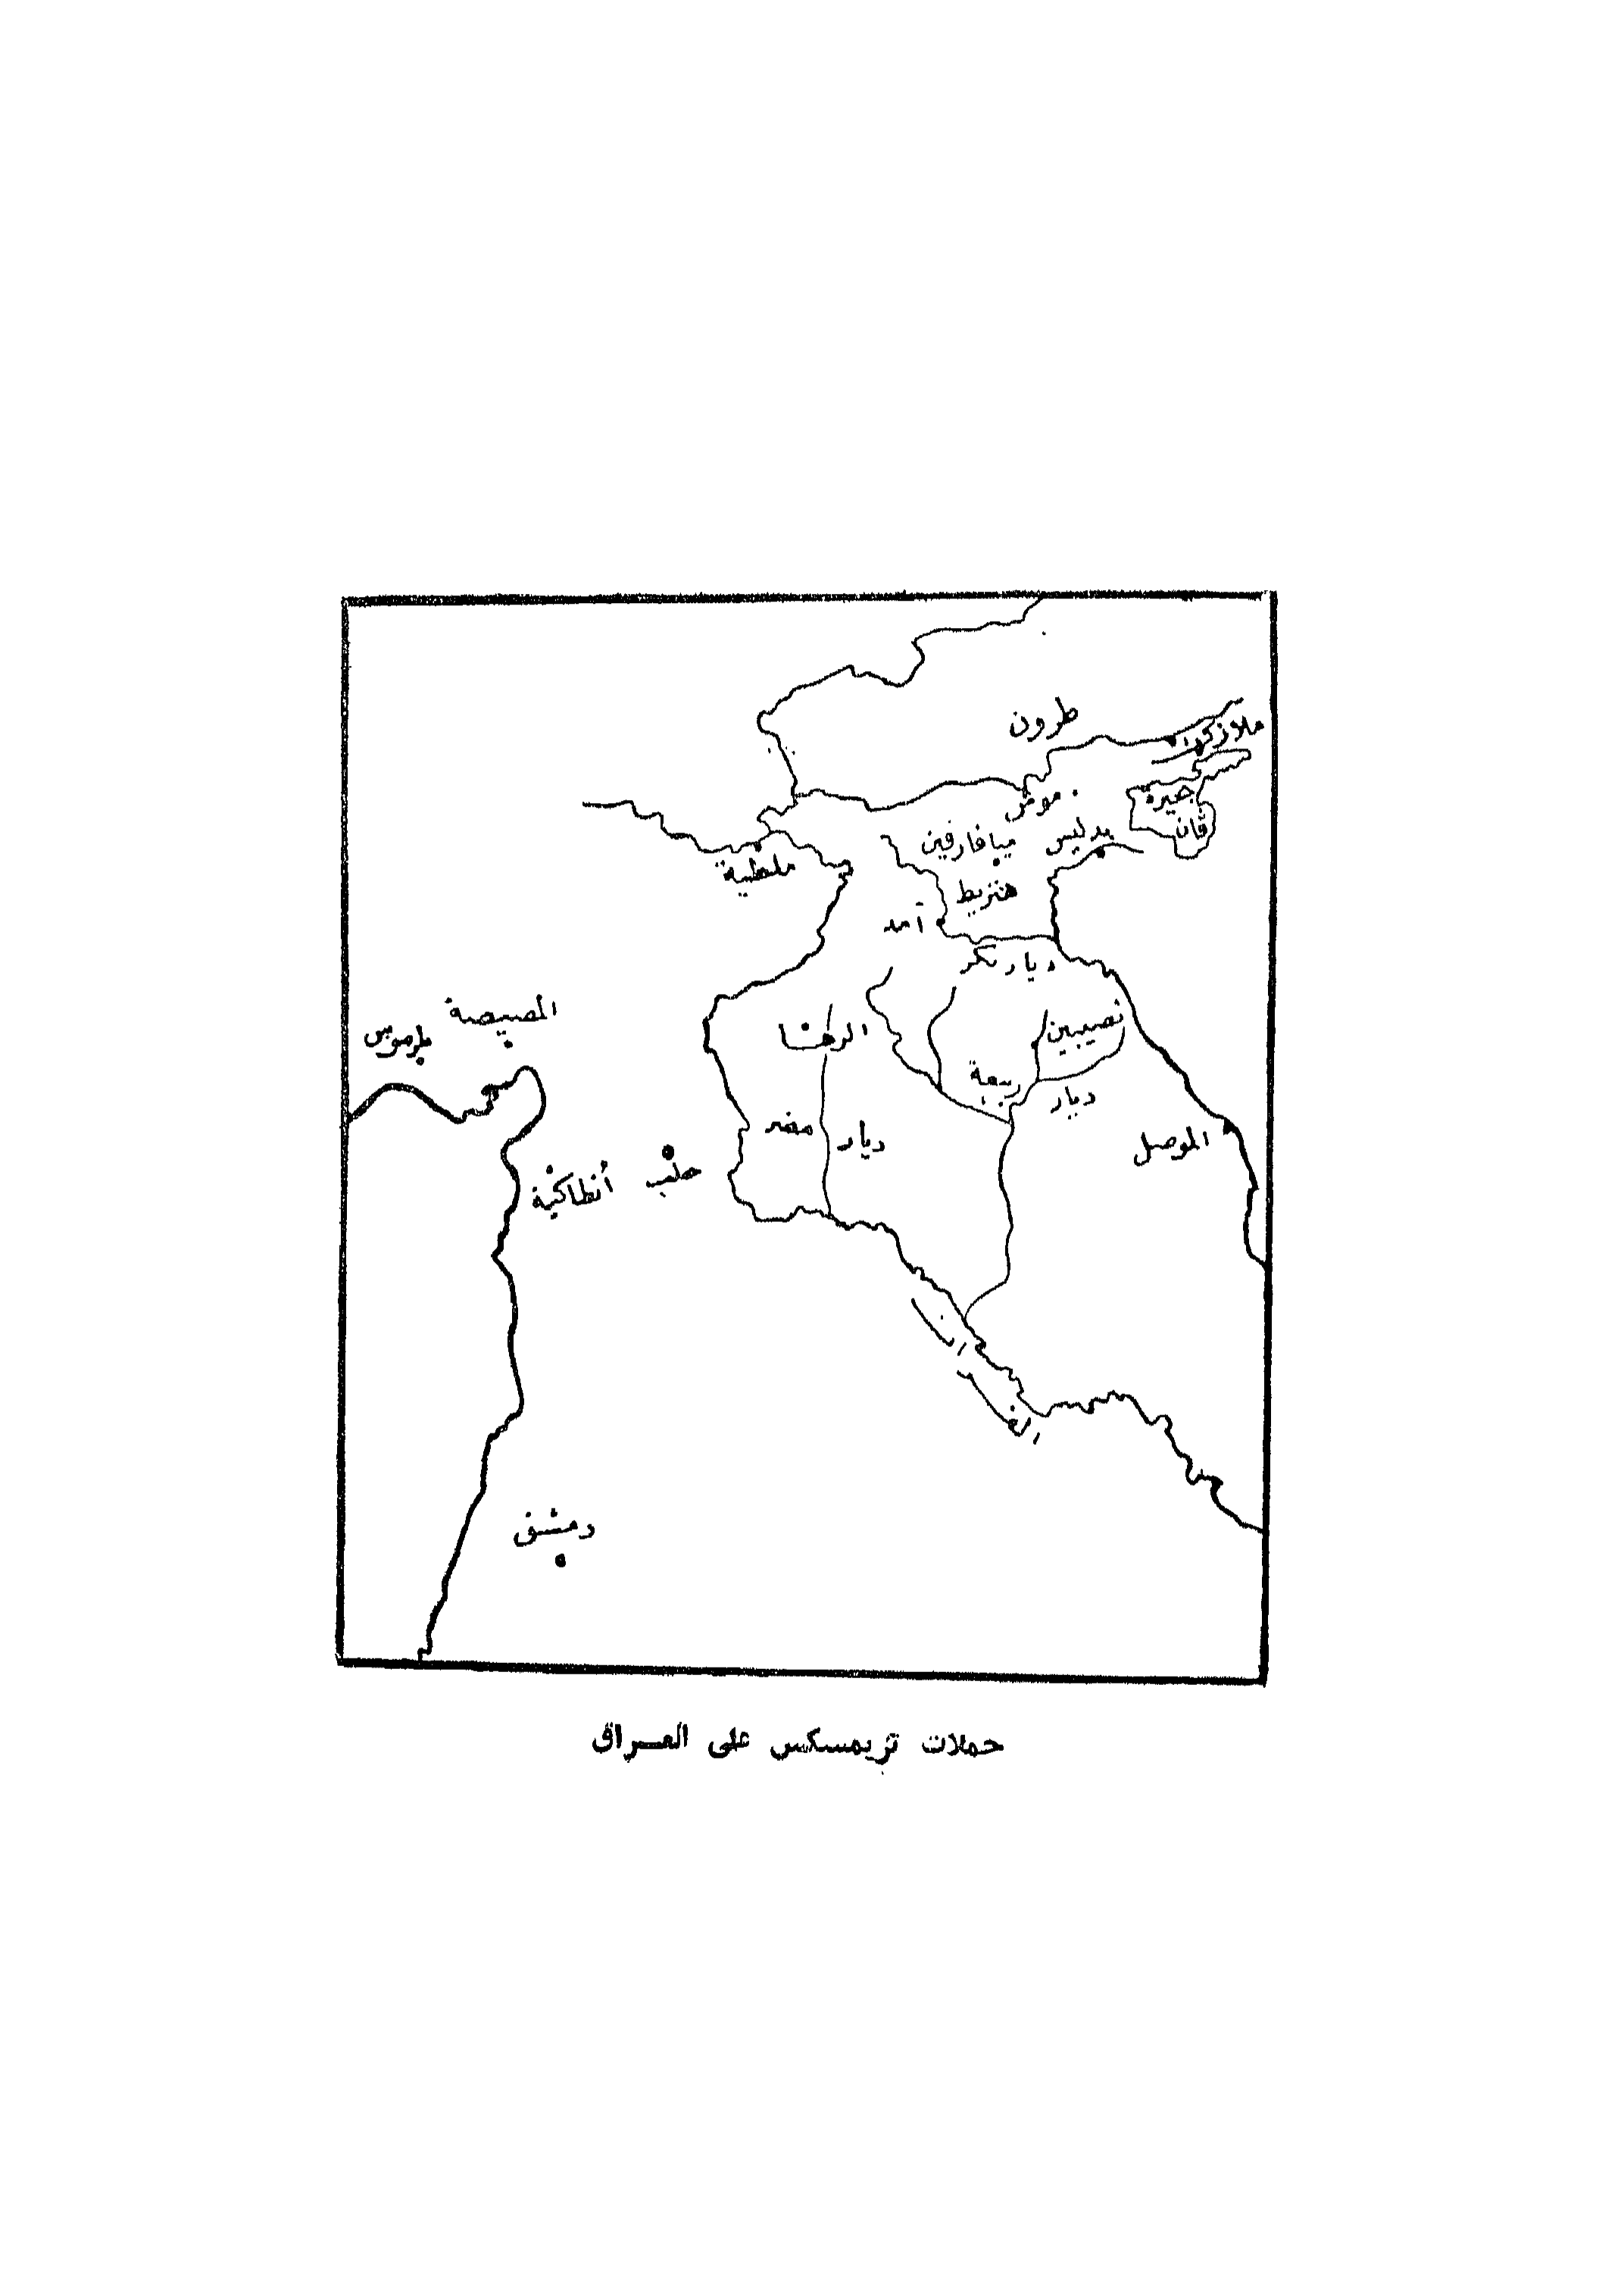 طرون
ملازكرد
موش
بحيرة
ڤان
بدليس
ميافارقين
ملطية
هنزيط
آمد
ديار بكر
المصيصة
طرسوس
الرها
نصيبين
ديار ربيعة
ديار مضر
الموصل
حلب
أنطاكية
الفرات
دمشق
حملات تزيمسكس على العراق